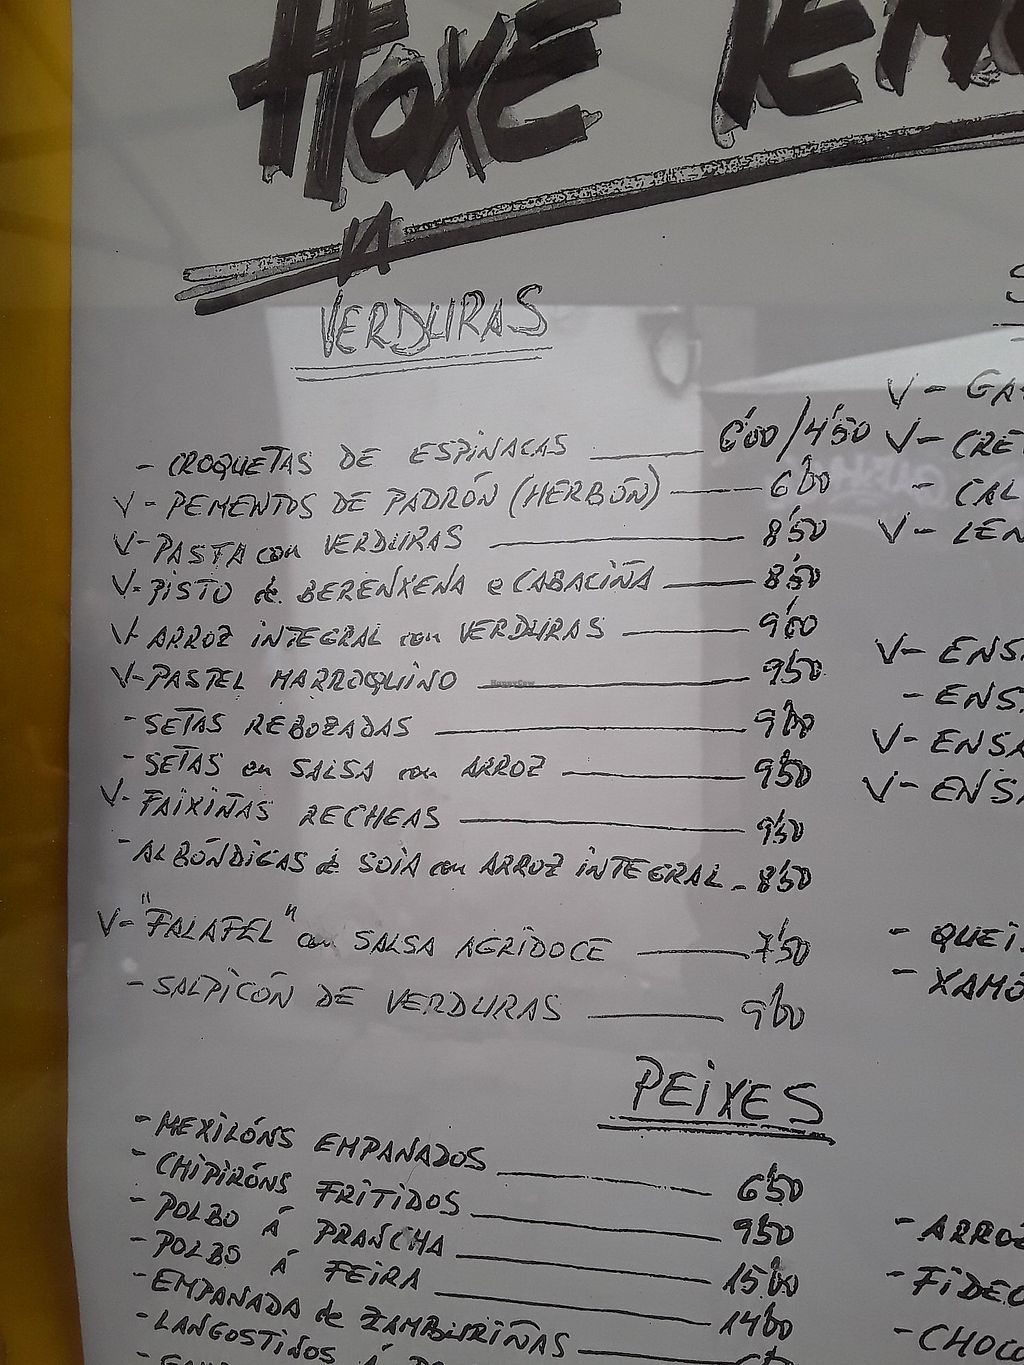 HOXE
VERDURAS
- CROQUETAS DE ESPINACAS 6'00/4'50
V- PEMENTOS DE PADRÓN (HERBÓN) 6'00
V- PASTA con VERDURAS 8'50
V- PISTO de BERENXENA e CABACIÑA 8'50
V- ARROZ INTEGRAL con VERDURAS 9'00
V- PASTEL MARROQUINO 9'50
- SETAS REBOZADAS 9'00
- SETAS en SALSA con ARROZ 9'50
V- FAIXIÑAS RECHEAS 9'50
- ALBÓNDIGAS de SOIA con ARROZ INTEGRAL - 8'50
V- "FALAFEL" con SALSA AGRIDOCE 7'50
- SALPICÓN DE VERDURAS 9'00
PEIXES
- MEXILÓNS EMPANADOS 6'50
- CHIPIRÓNS FRITIDOS 9'50
- POLBO Á PRANCHA 15'00
- POLBO Á FEIRA 14'00
- EMPANADA de ZAMBURIÑAS
- LANGOSTINOS Á
V- GA
V- CRE
- CAL
V- LEN
V- ENSA
- ENS
V- ENSA
V- ENSA
- QUEI
- XAMÓ
- ARROZ
- FIDEO
- CHOCO
HappyCow